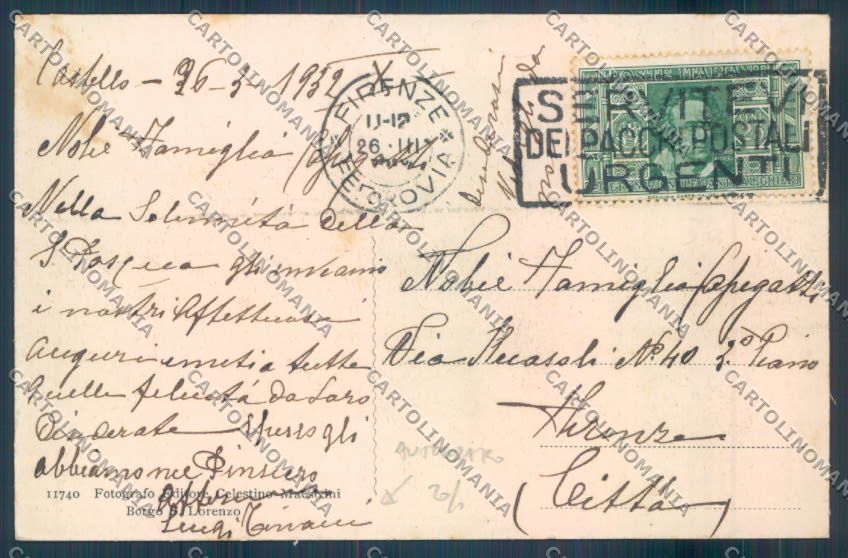 Castello - 26-3-1932 X
Nobil Famiglia Capegatti
Nella Solennità della
S Pasqua gli inviamo
i nostri Affettuosi
Auguri tutte
quelle felicità da Loro
Spesso gli
abbiamo nel Pensiero
Luigi
FIRENZE
11-12
26·III
FERROVIA
SERVITEVI
DEI PACCHI POSTALI
URGENTI
POSTE ITALIANE
CENT
Nobil Famiglia Capegatti
Via Ricasoli N° 40 2° Piano
Firenze
(Città)
20/1
11740 Fotografo Editore Celestino Maestrini
Borgo S. Lorenzo
CARTOLINOMANIA